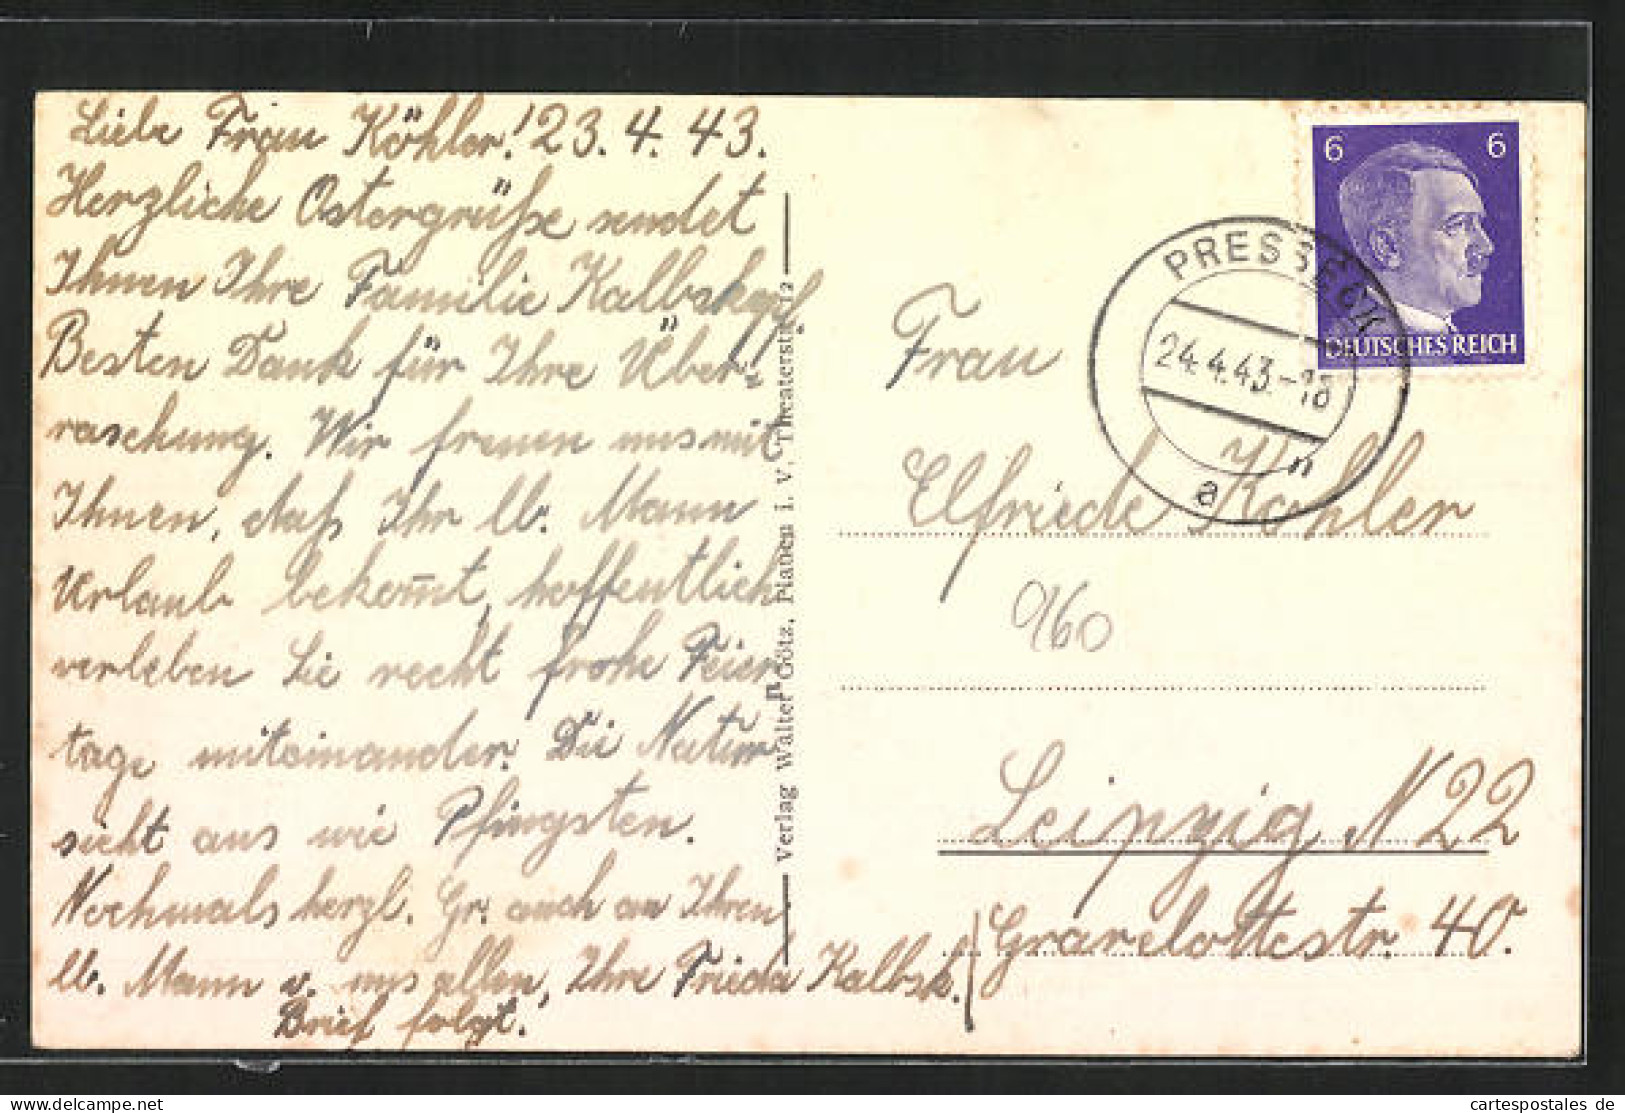 Liebe Frau Köhler! 23.4.43.
Herzliche Ostergrüße sendet
Ihnen Ihre Familie Kalbskopf.
Besten Dank für Ihre Über-
raschung. Wir freuen uns mit
Ihnen, daß Ihr lb. Mann
Urlaub bekom̅t, hoffentlich
verleben Sie recht frohe Feier
tage miteinander. Die Natur
sieht aus wie Pfingsten.
Nochmals herzl. Gr. auch an Ihren
lb. Mann v. uns allen, Ihre Frieda Kalbsk.
Brief folgt.
Verlag Walter Götz, Plauen i. V., Theaterstr. 12
6 6
DEUTSCHES REICH
PRESSECK
24.4.43.-18
a
Frau
Elfriede Köhler
960
Leipzig N22
Gravelottestr. 40.
cartespostales de